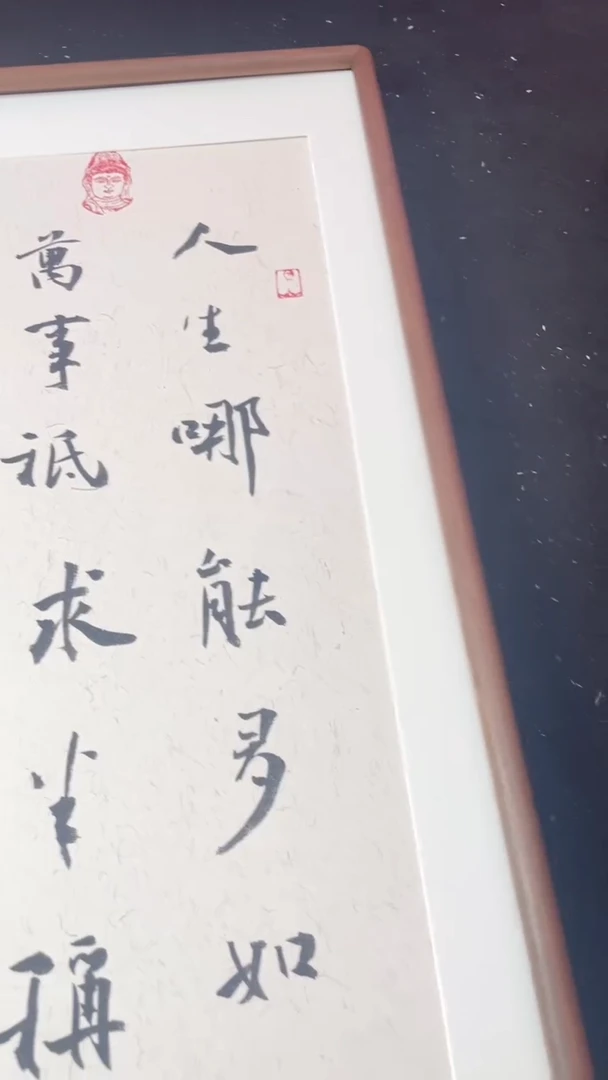 人生哪能多如
萬事祗求半稱